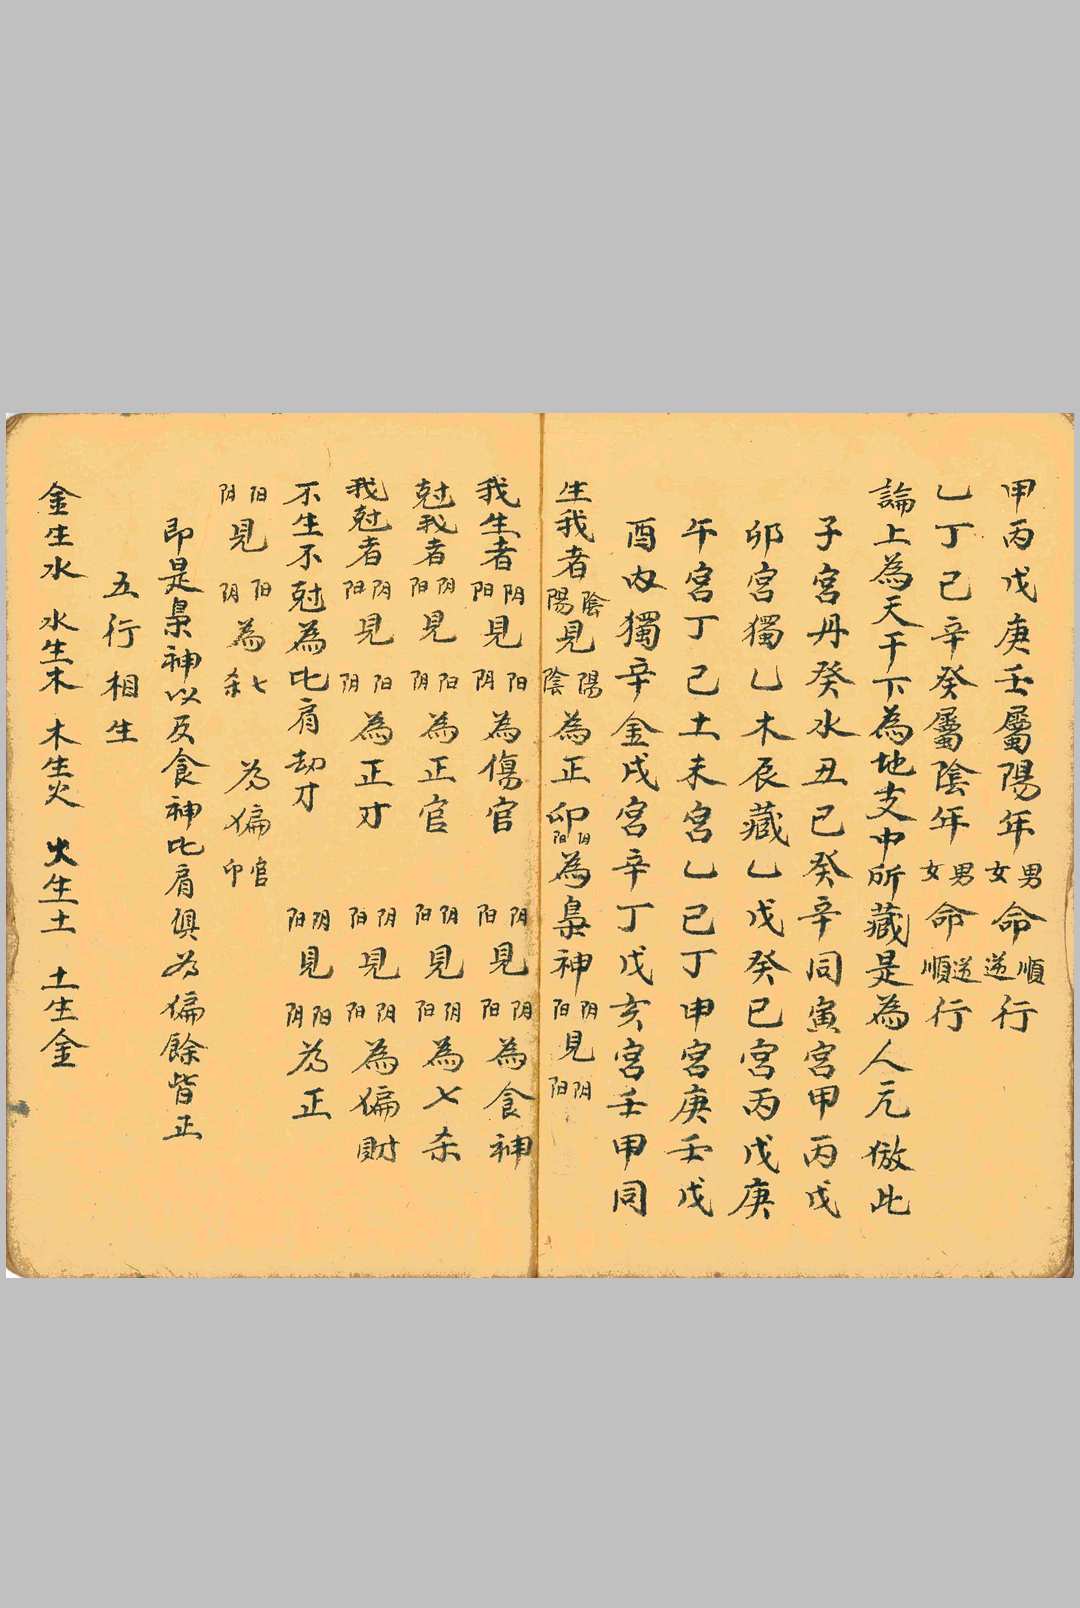 甲丙戊庚壬屬陽年男女命順逆行
乙丁己辛癸屬陰年男女命逆順行
論上為天干下為地支中所藏是為人元倣此
子宮丹癸水丑己癸辛同寅宮甲丙戊
卯宮獨乙木辰藏乙戊癸巳宮丙戊庚
午宮丁己土未宮乙己丁申宮庚壬戊
酉内獨辛金戌宮辛丁戊亥宮壬甲同
生我者陰陽見陽陰為正卯阴阳為梟神阴阳見阴阳
我生者阴阳見阳阴為傷官 阴阳見阴阳為食神
尅我者阴阳見阳阴為正官 阴阳見阴阳為七杀
我尅者阴阳見阳阴為正才 阴阳見阴阳為偏財
不生不尅為比肩劫才 阴阳見阳阴為正
阳阴見阳阴為七杀 為偏官卯
即是梟神以及食神比肩俱為偏餘皆正
五行相生
金生水 水生木 木生火 火生土 土生金